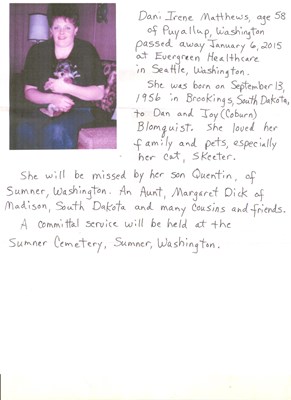 Dani Irene Matthews, age 58
of Puyallup, Washington
passed away January 6, 2015
at Evergreen Healthcare
in Seattle, Washington.
She was born on September 13,
1956 in Brookings, South Dakota,
to Dan and Joy (Coburn)
Blomquist. She loved her
family and pets, especially
her cat, Skeeter.
She will be missed by her son Quentin, of
Sumner, Washington. An Aunt, Margaret Dick of
Madison, South Dakota and many cousins and friends.
A committal service will be held at the
Sumner Cemetery, Sumner, Washington.